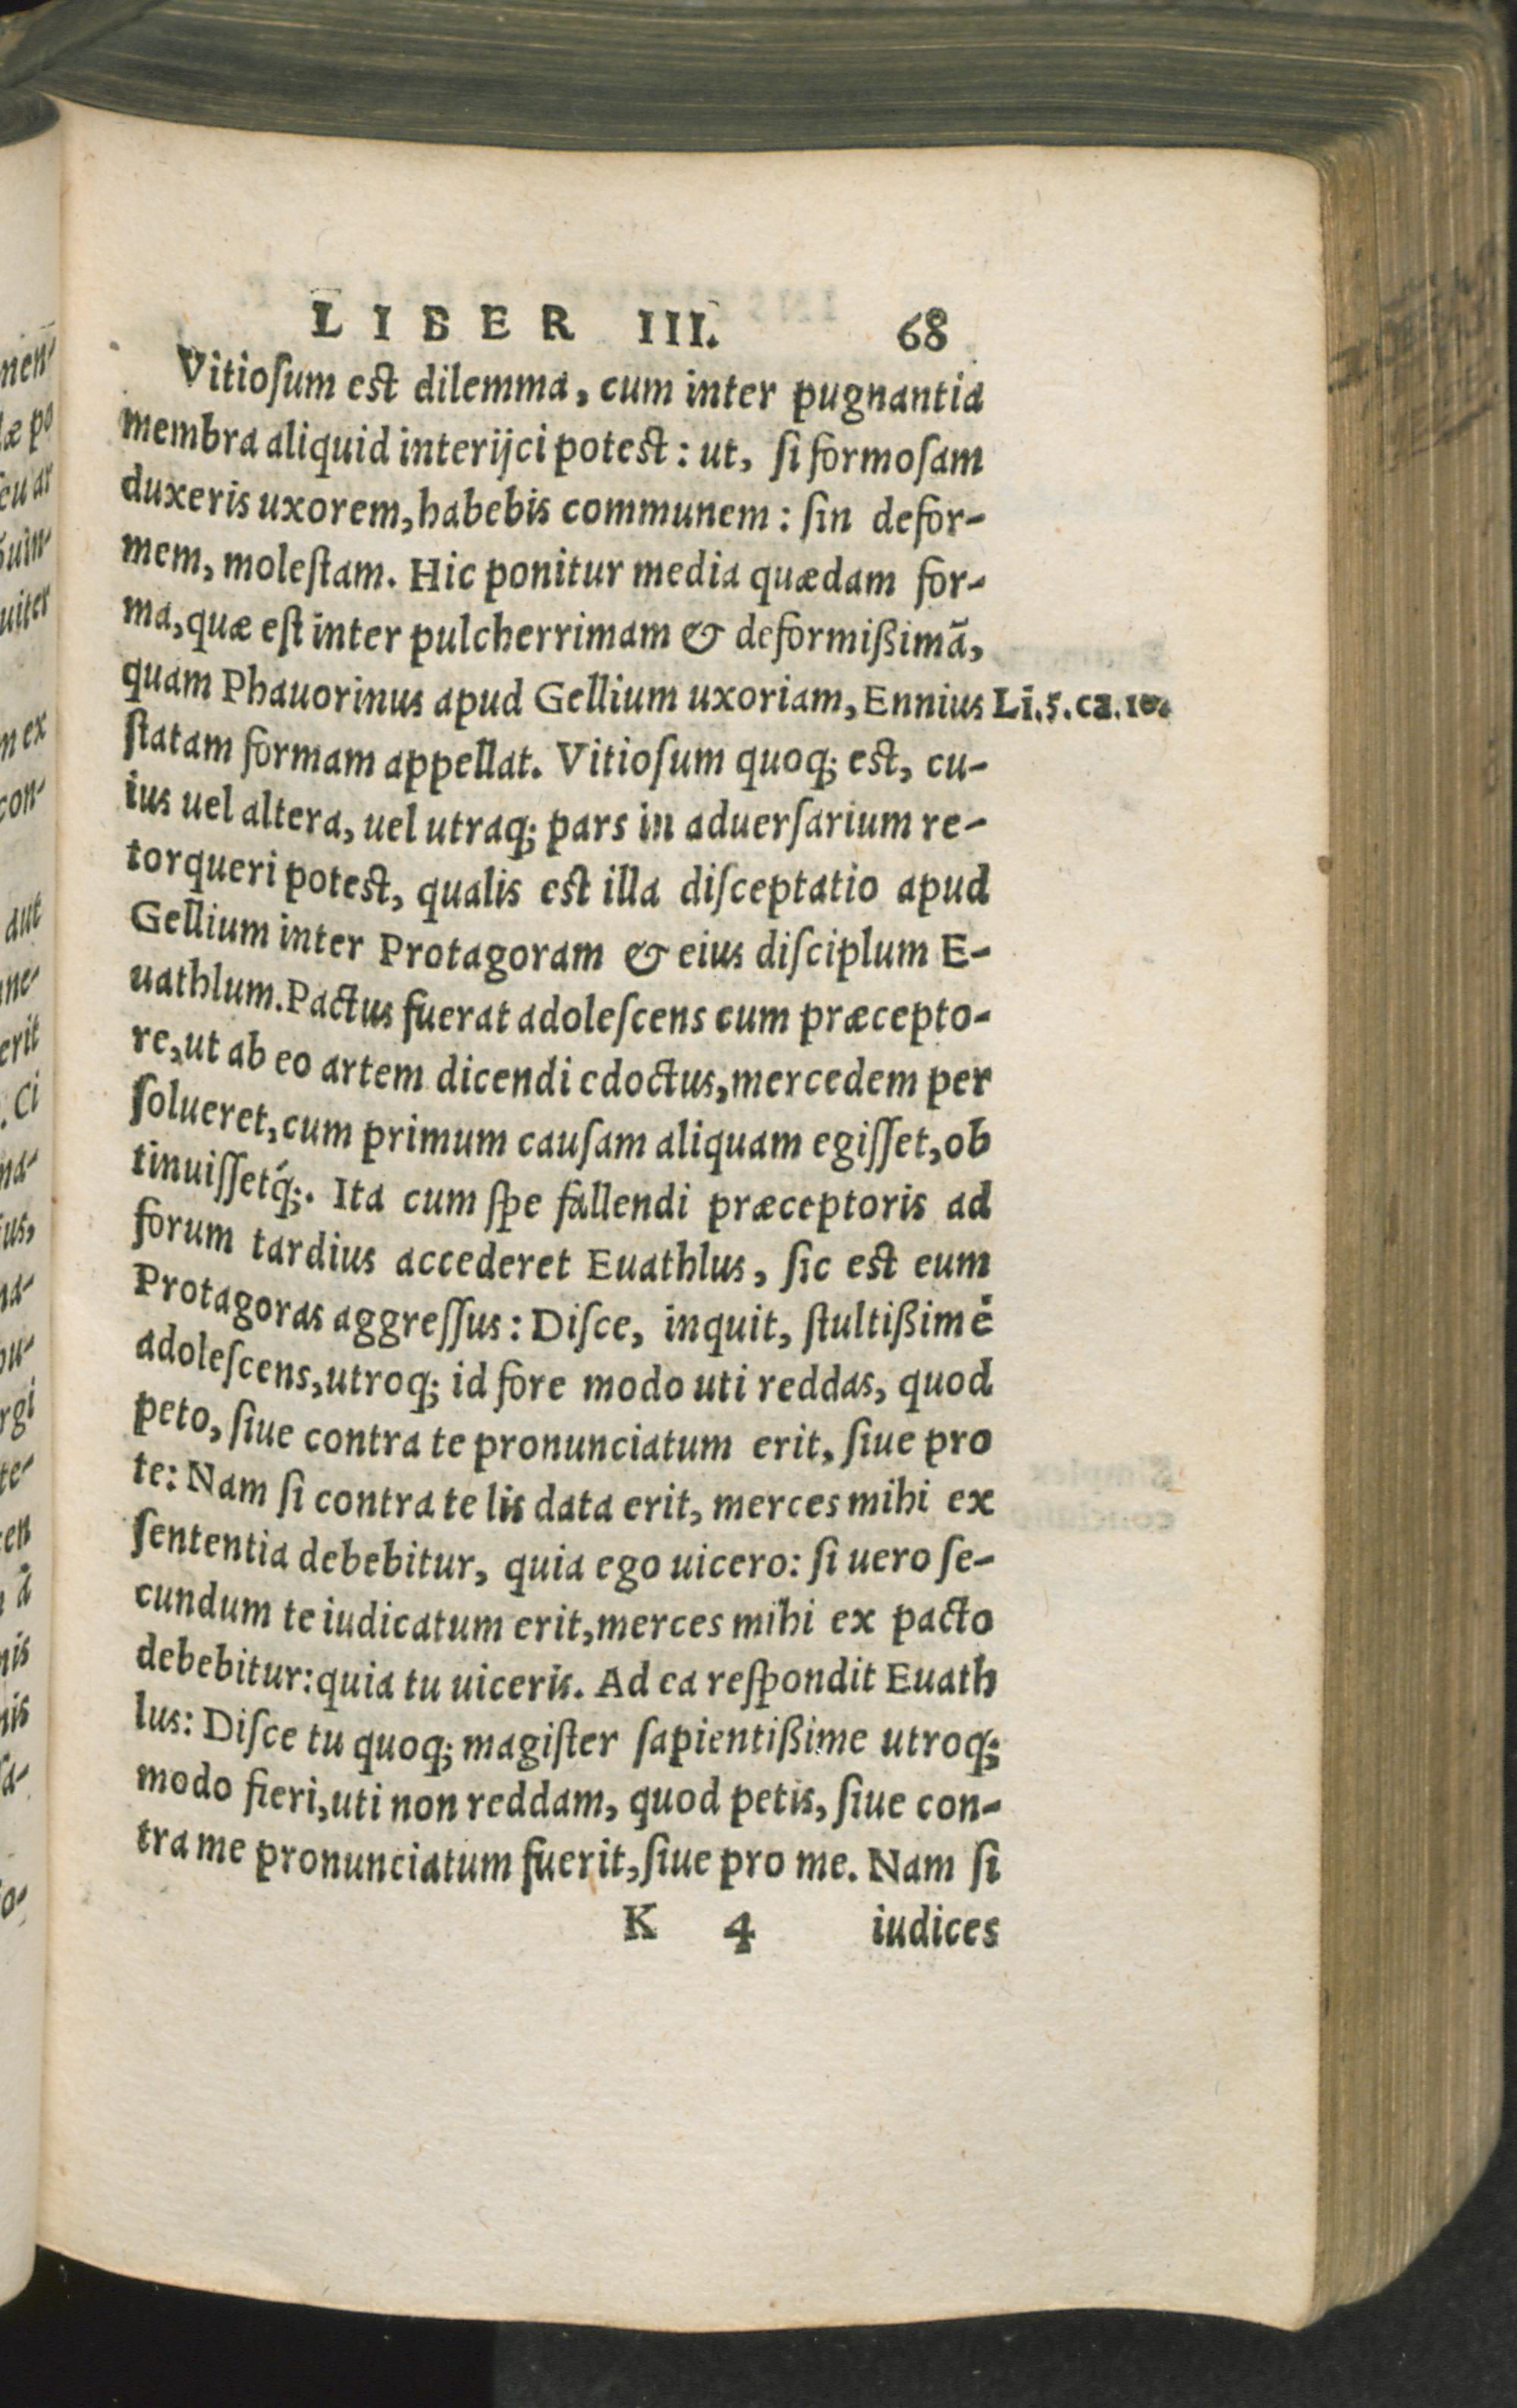 LIBER III. 68
Vitioſum est dilemma, cum inter pugnantia
membra aliquid interijci potest: ut, ſi formoſam
duxeris uxorem, habebis communem: ſin defor-
mem, moleſtam. Hic ponitur media quædam for-
ma, quæ eſt inter pulcherrimam & deformißimã,
quam Phauorinus apud Gellium uxoriam, Ennius Li.5.ca.10.
ſtatam formam appellat. Vitioſum quoq; est, cu-
ius uel altera, uel utraq; pars in aduerſarium re-
torqueri potest, qualis est illa diſceptatio apud
Gellium inter Protagoram & eius diſciplum E-
uathlum. Pactus fuerat adoleſcens cum præcepto-
re, ut ab eo artem dicendi edoctus, mercedem per
ſolueret, cum primum cauſam aliquam egiſſet, ob
tinuiſſetq́;. Ita cum ſpe fallendi præceptoris ad
forum tardius accederet Euathlus, ſic est eum
Protagoras aggreſſus: Diſce, inquit, ſtultißime
adoleſcens, utroq; id fore modo uti reddas, quod
peto, ſiue contra te pronunciatum erit, ſiue pro
te: Nam ſi contra te lis data erit, merces mihi ex
ſententia debebitur, quia ego uicero: ſi uero ſe-
cundum te iudicatum erit, merces mihi ex pacto
debebitur: quia tu uiceris. Ad ea reſpondit Euath
lus: Diſce tu quoq; magiſter ſapientißime utroq;
modo fieri, uti non reddam, quod petis, ſiue con-
tra me pronunciatum fuerit, ſiue pro me. Nam ſi
K 4 iudices